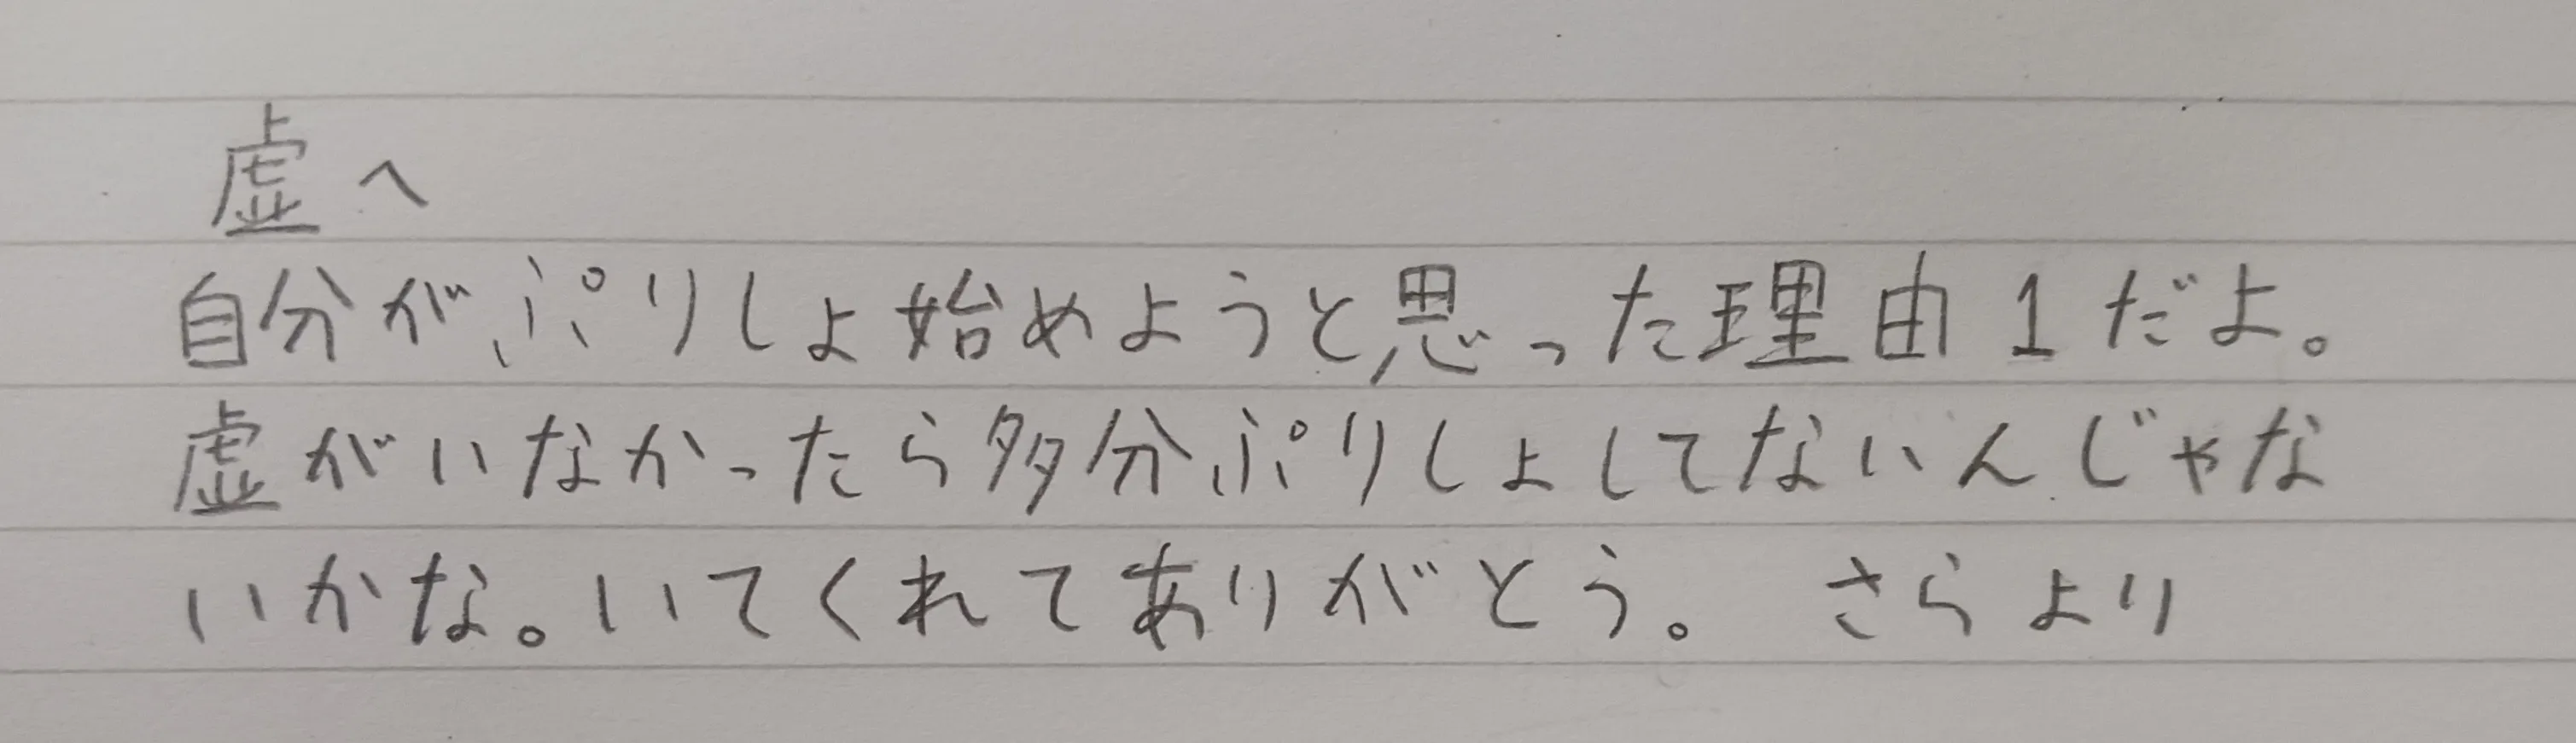 虚へ
自分がぷりしょ始めようと思った理由1だよ。
虚がいなかったら多分ぷりしょしてないんじゃな
いかな。いてくれてありがとう。 さらより